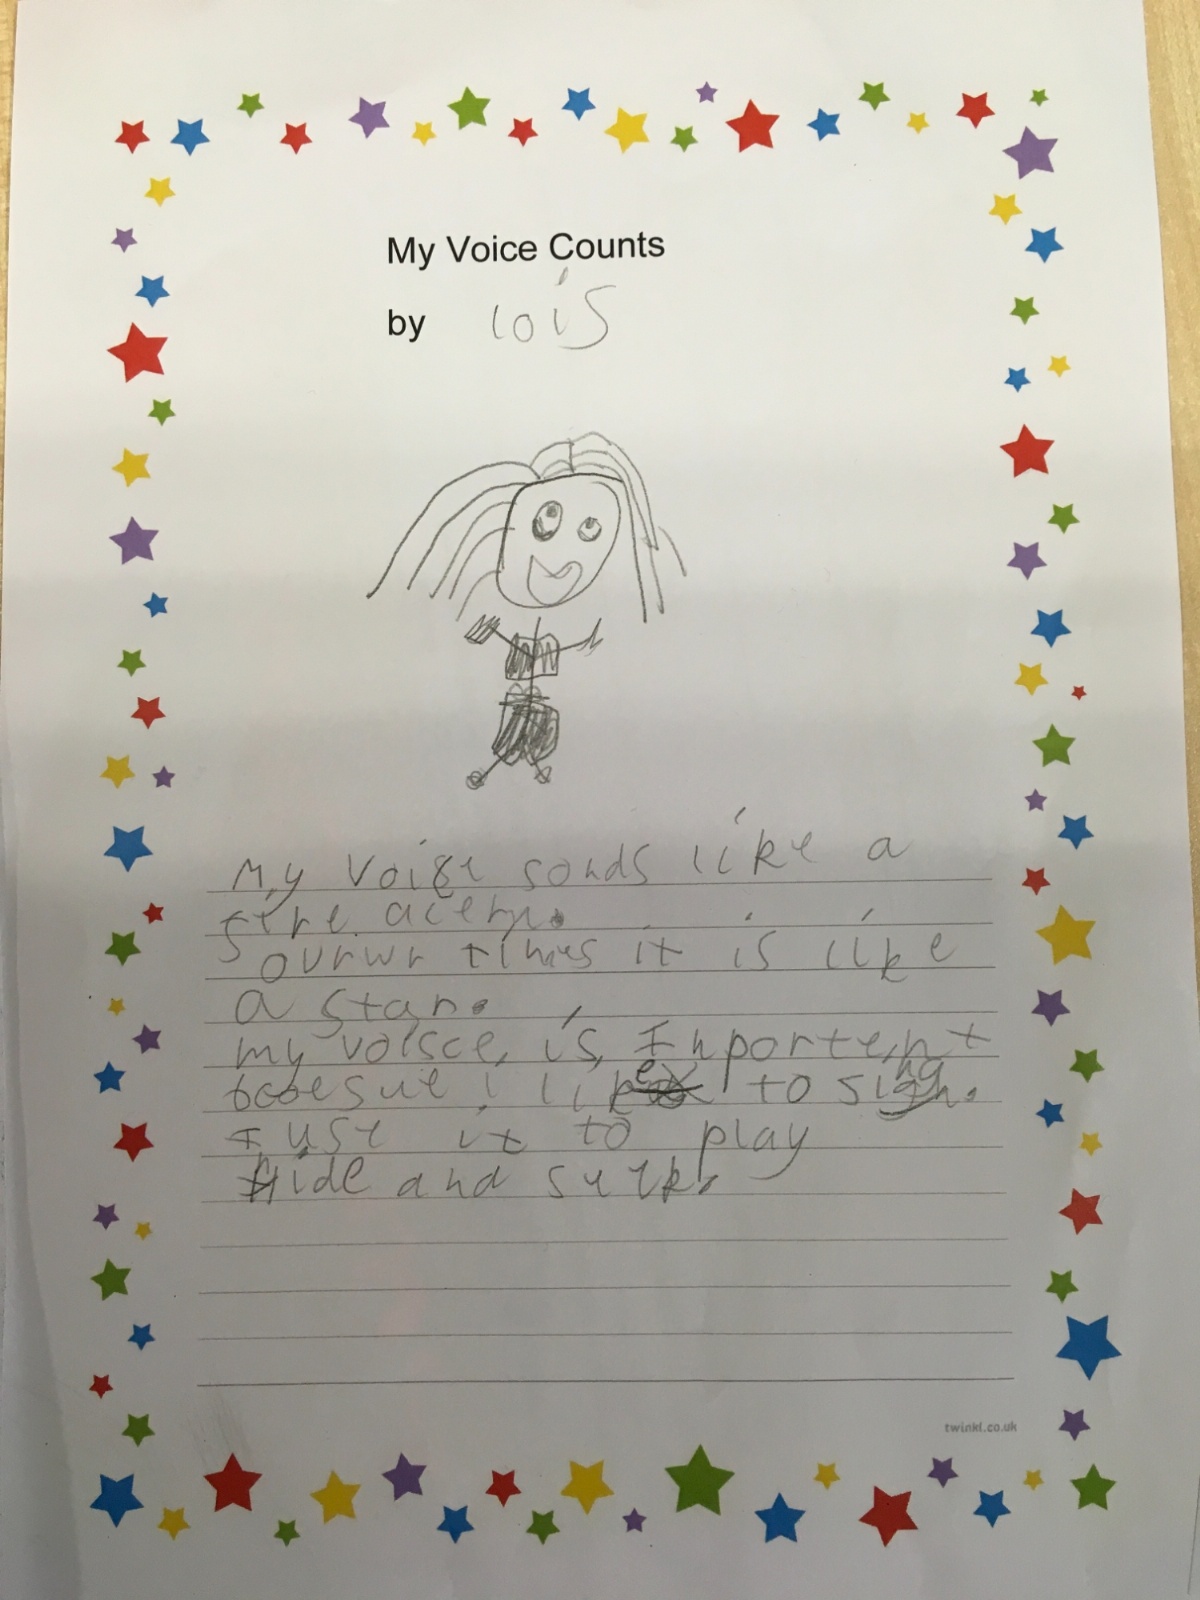 My Voice Counts
by lois
My voise sonds like a
fire
times it is like
a star.
my voisce, is, Inportent
like to sing.
I use it to play
Hide and seek.
twinkl.co.uk